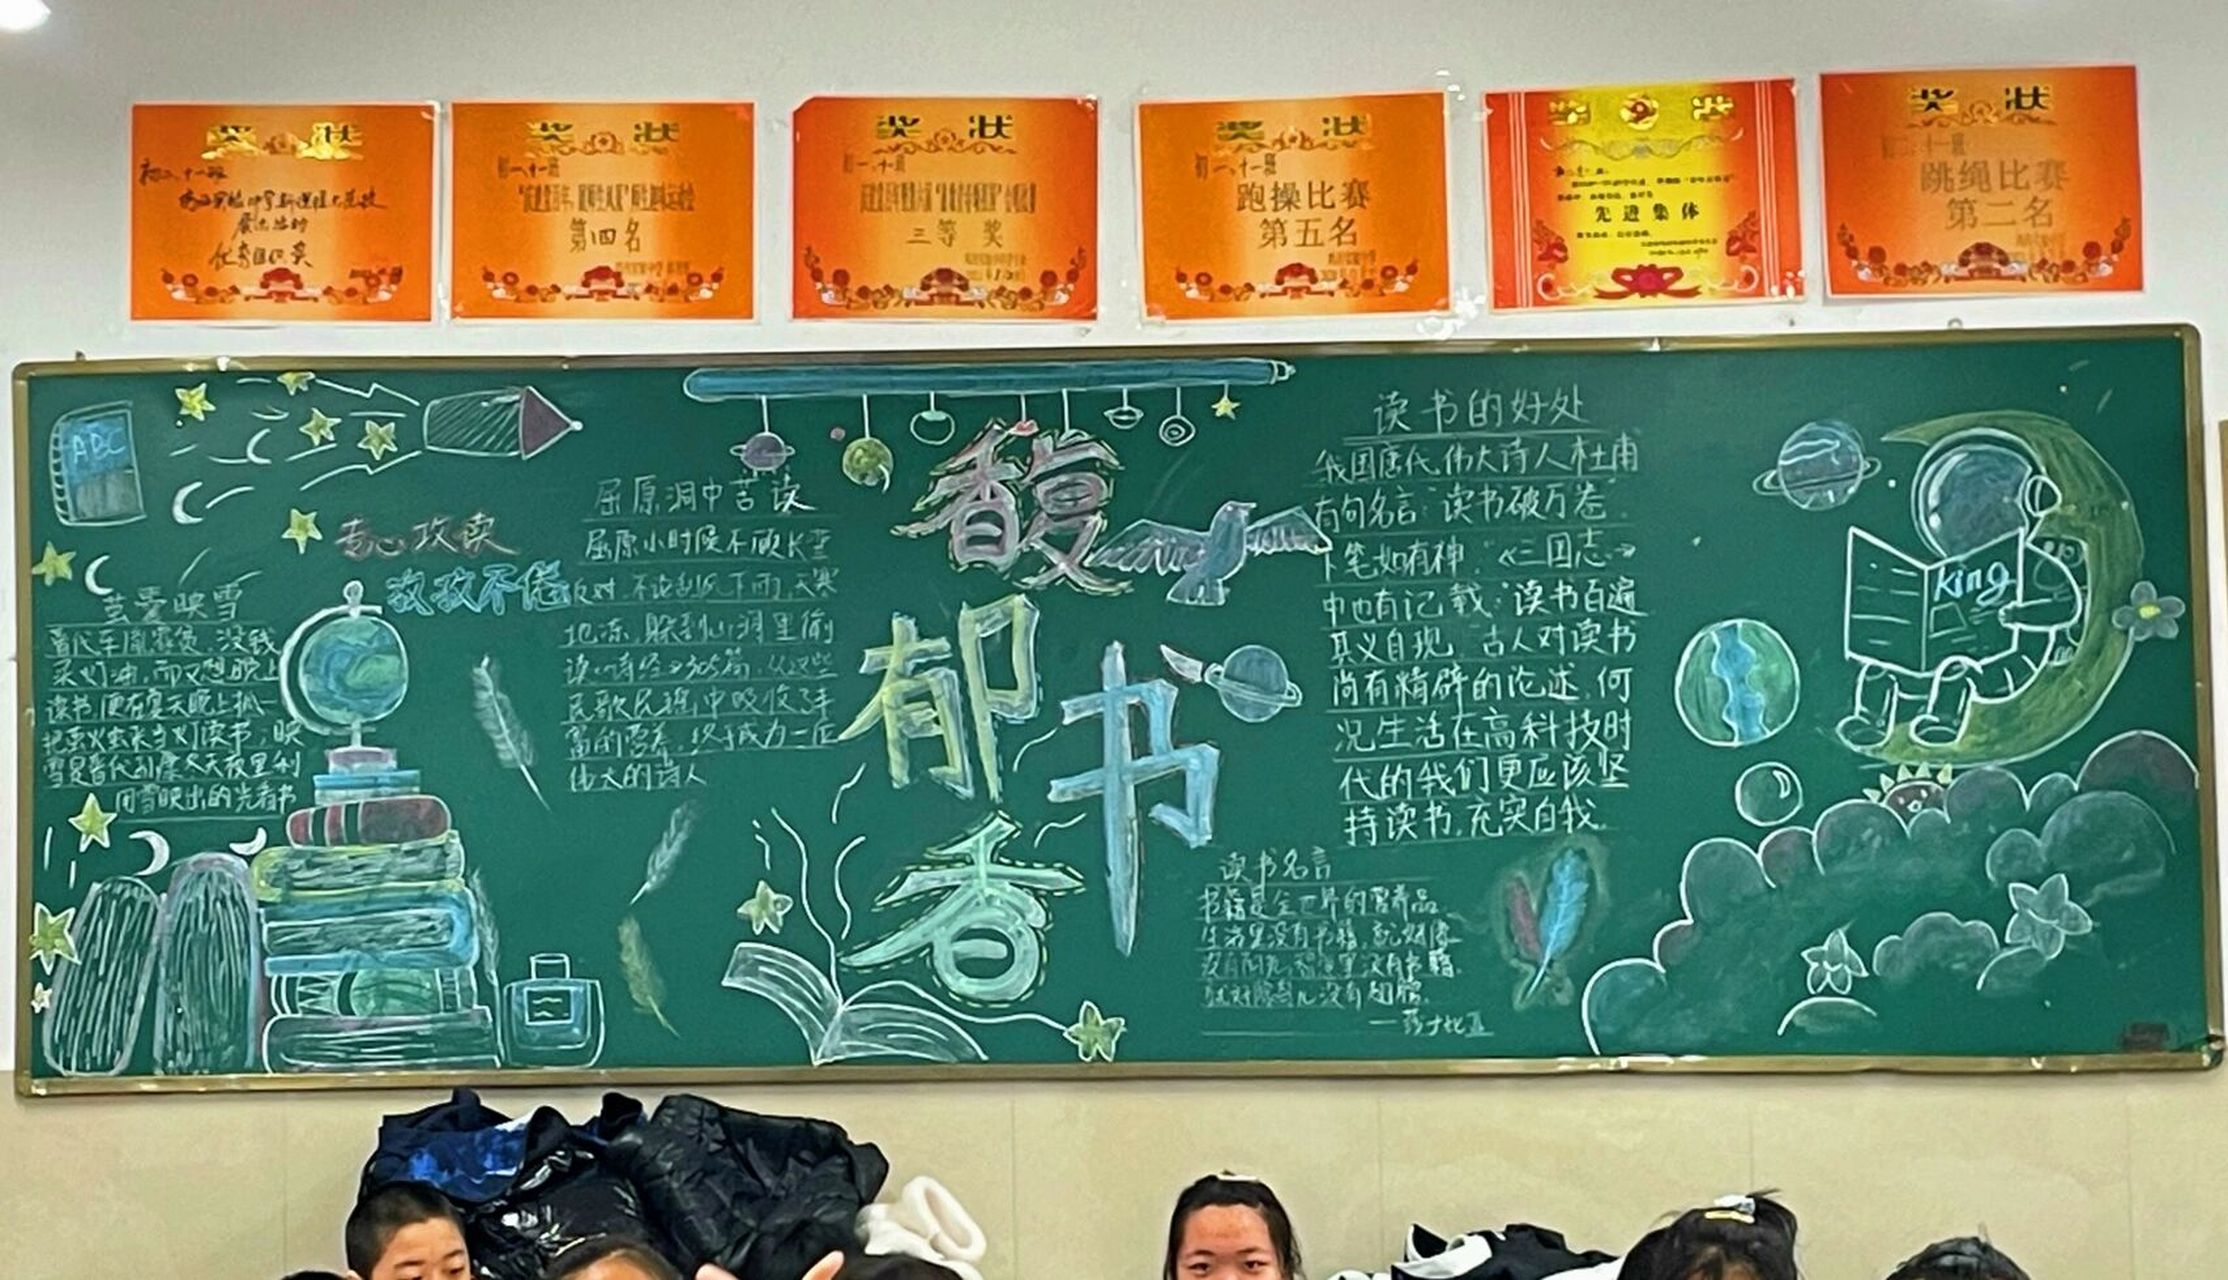 奖状
初二、十一班
优秀组织奖
奖状
初一、十一班
第四名
奖状
初一、十一班
三等奖
奖状
初一、十一班
跑操比赛
第五名
奖状
先进集体
奖状
初二、十一班
跳绳比赛
第二名
ABC
专心攻读
孜孜不倦
馥
郁
书
香
屈原洞中苦读
屈原小时候不顾长辈
反对,不论刮风下雨,天寒
地冻,躲到山洞里偷
读《诗经》305篇,从这些
民歌民谣中吸收了丰
富的营养,终于成为一位
伟大的诗人
囊萤映雪
晋代车胤家贫,没钱
买灯油,而又想晚上
读书,便在夏天晚上抓一
把萤火虫来当灯读书;映
雪是晋代孙康冬天夜里利
用雪映出的光看书
读书的好处
我国唐代伟大诗人杜甫
有句名言:读书破万卷,
下笔如有神,《三国志》
中也有记载:读书百遍
其义自现,古人对读书
尚有精辟的论述,何
况生活在高科技时
代的我们更应该坚
持读书,充实自我.
读书名言
书籍是全世界的营养品,
生活里没有书籍,
没有阳光,智慧里没有书籍,
就好像鸟儿没有翅膀.
—莎士比亚
King